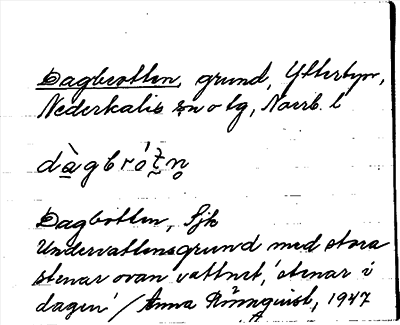 Dagbrotten, grund, Yttertyre,
Nederkalix sn o lg, Norrb. l
dàgbrótn
Dagbotten, Sjk
Undervattensgrund med stora
stenar ovan vattnet, 'stenar i
dagen' / Anna Rönnquist, 1947